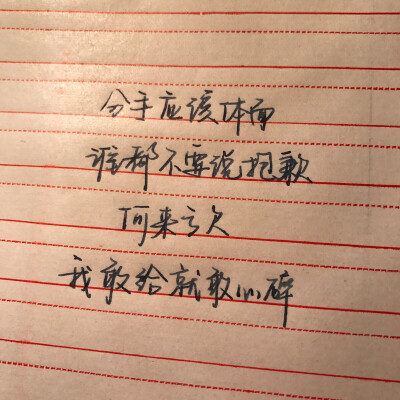 分手应该体面
谁都不要说抱歉
何来亏欠
我敢给就敢心碎